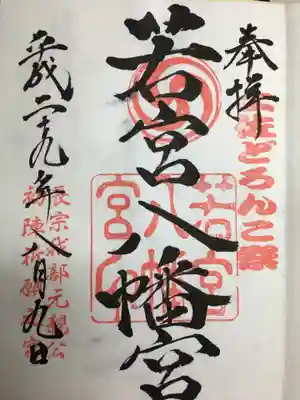 奉拝
土佐どろんこ祭
若宮八幡宮
若宮
八幡
宮印
平成二十九年八月九日
長宗我部元親公
初陣祈願